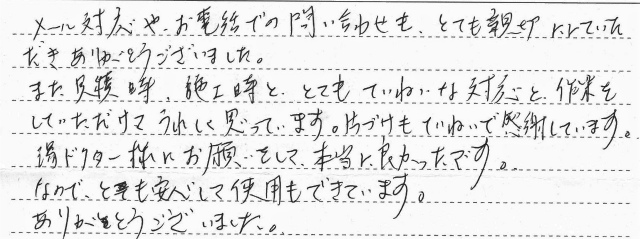 メール対応や、お電話での問い合わせも、とても親切にしていた
だきありがとうございました。
また見積時、施工時と、とてもていねいな対応と、作業を
していただけてうれしく思っています。片づけもていねいで感謝しています。
湯ドクター様にお願いをして、本当に良かったです。
なので、とても安心して使用もできています。
ありがとうございました。